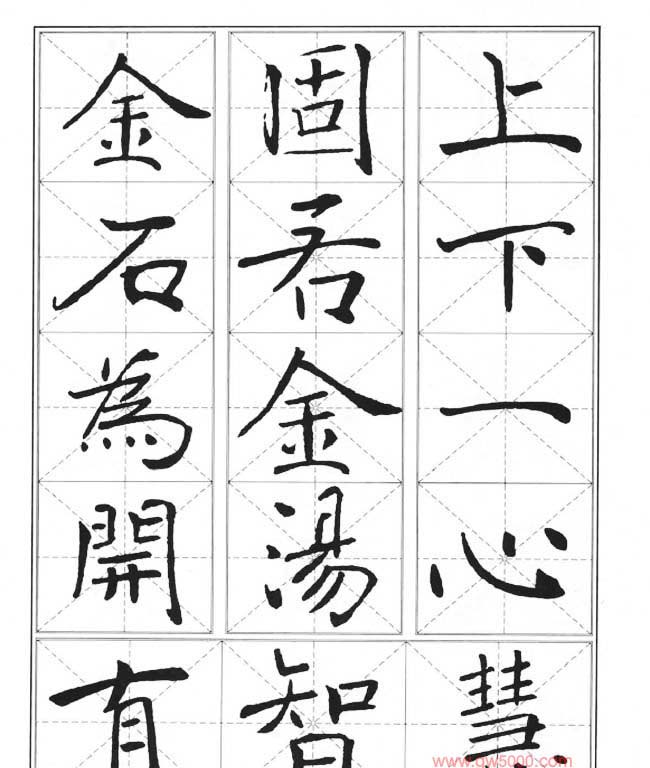 上下一心
固若金湯
金石為開
慧
智
有
www.qw5000.com